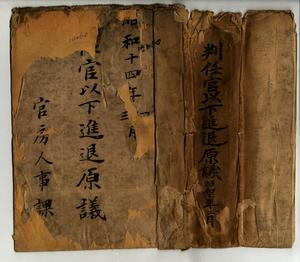 判任官以下進退原議
昭和十四年
三月
官以下進退原議
官房人事課